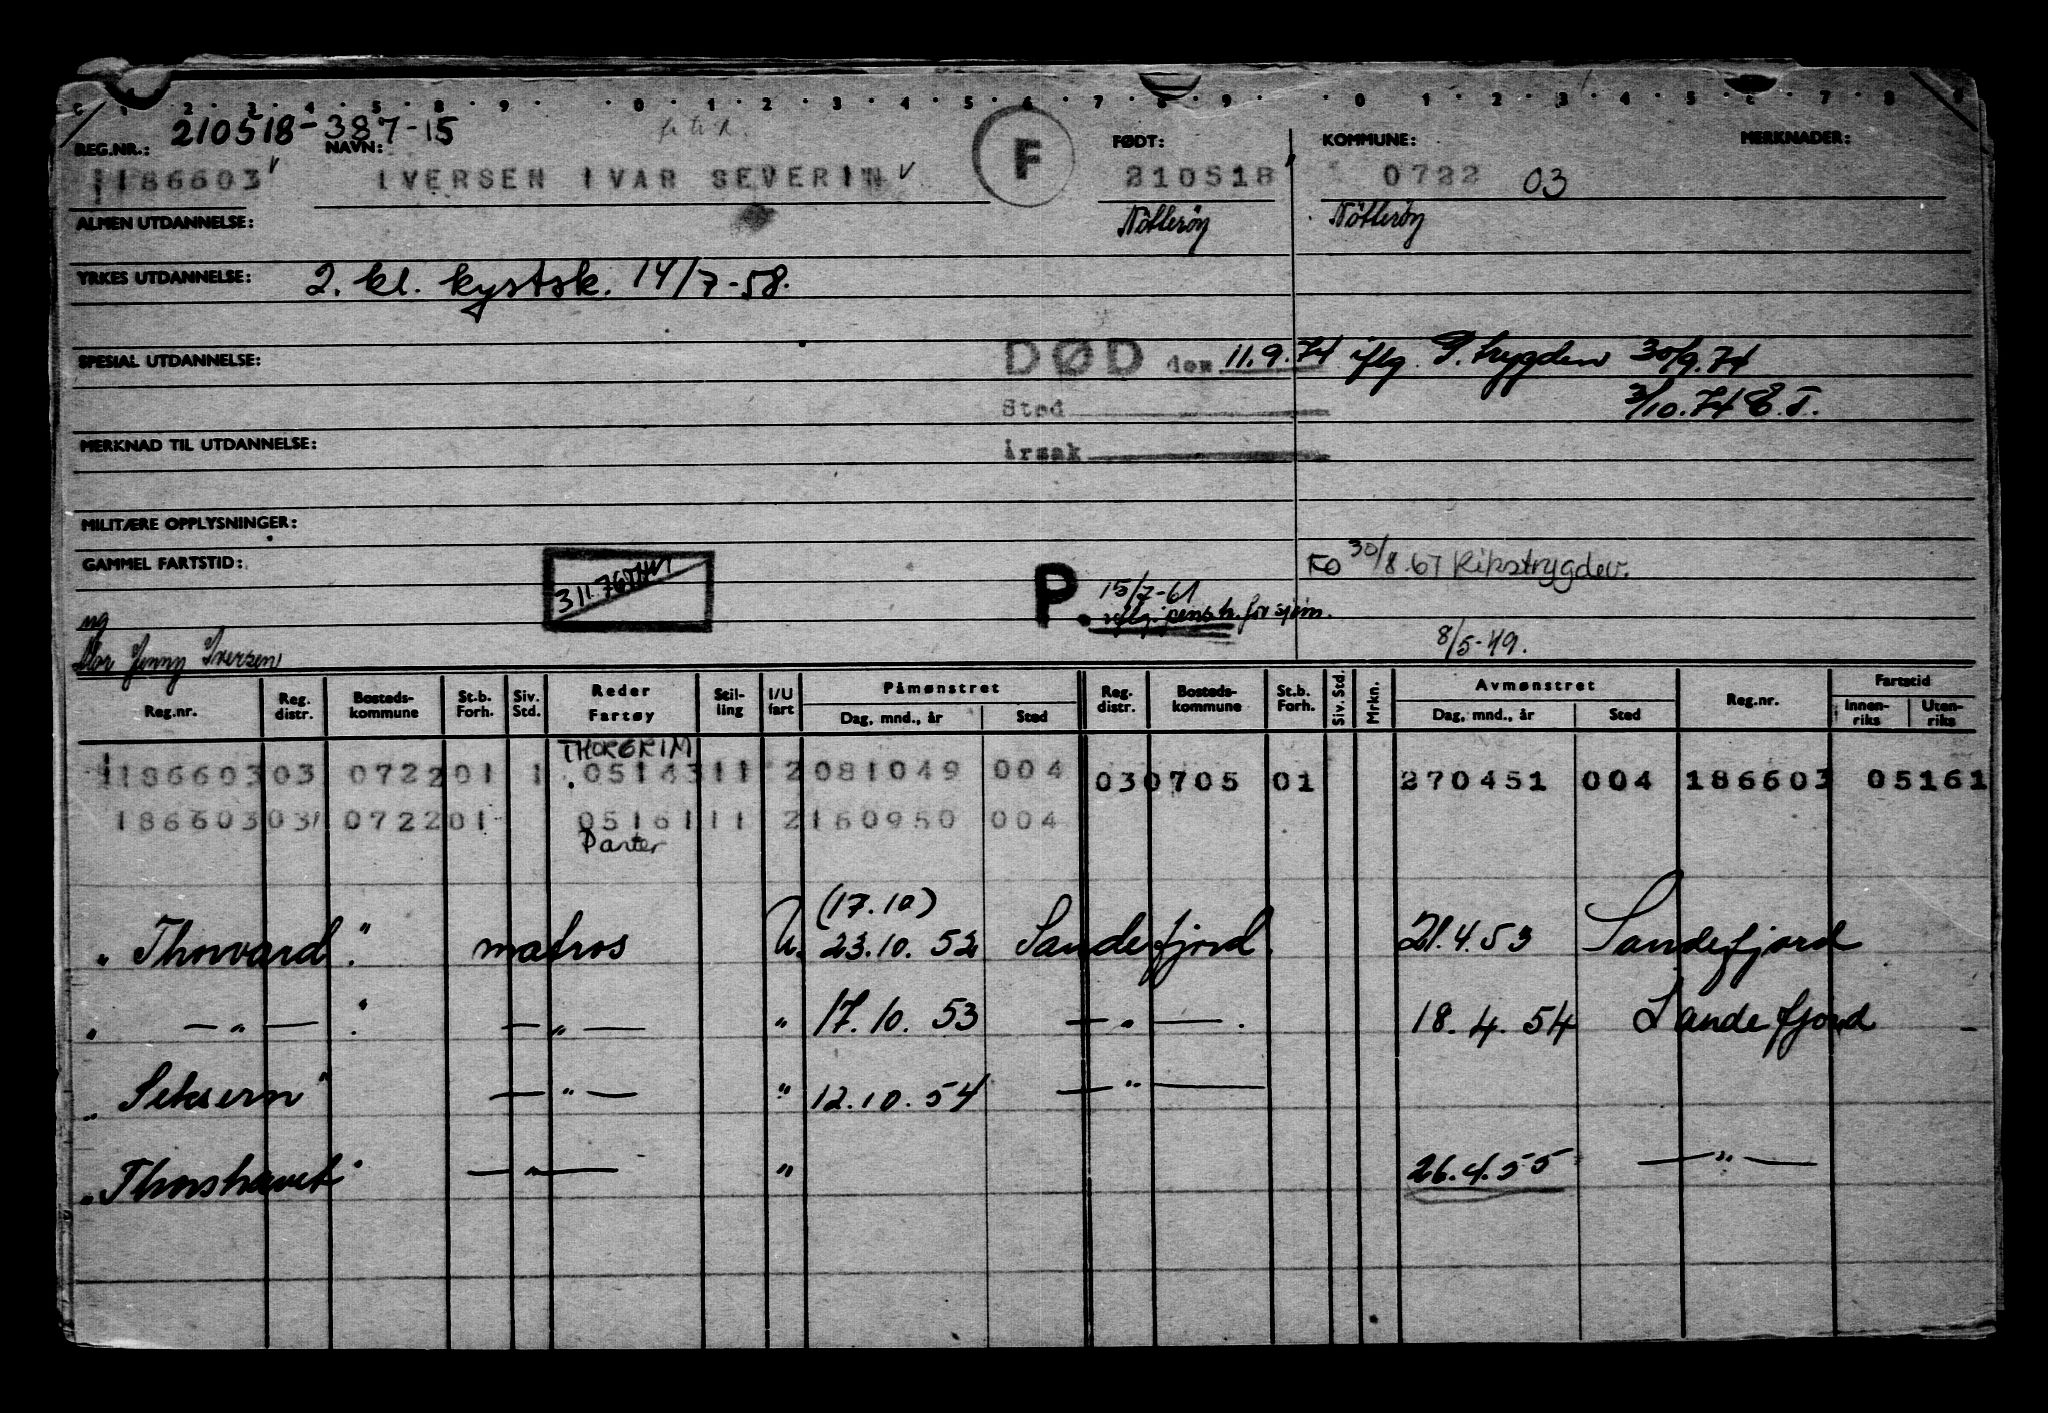 210518-387-15
REG.NR.: NAVN: FØDT: KOMMUNE: MERKNADER:
186603 IVERSEN IVAR SEVERIN F 210518 0722 03
ALMEN UTDANNELSE: Nötteröy Nötteröy
YRKES UTDANNELSE: 2. kl. kystsk. 14/7-58.
SPESIAL UTDANNELSE: DØD den 11.9.74 iflg. P. trygden 30/9.74
Sted 3/10.74 E.T.
MERKNAD TIL UTDANNELSE: Årsak
MILITÆRE OPPLYSNINGER:
GAMMEL FARTSTID: FO 30/8.67 Rikstrygdev.
P. 15/7-61
ug iflg. penstr. for sjøm.
Mor Jenny Iversen 8/5-49.
Reg.nr. Reg. distr. Bosteds-kommune St.b. Forh. Siv. Std. Reder Fartøy Stil-ling I/U fart Påmønstret Dag, mnd., år Sted Reg. distr. Bosteds-kommune St.b. Forh. Siv. Std. Mrkn. Avmønstret Dag, mnd., år Sted Reg.nr. Fartstid Innen-riks Uten-riks
THORGRIM
186603 03 0722 01 1 05143 11 2 081049 004 03 0705 01 270451 004 186603 05161
186603 03 0722 01 05161 11 2 160950 004
Panter
(17.10)
" Thorvard " matros U. 23.10. 52 Sandefjord. 21.4.53 Sandefjord
" — " — " — " — " 17.10. 53 — " — . 18. 4. 54 Sandefjord
" Seksern " — " — " 12.10. 54 — " —
" Thorshavet " — " — " 26.4.55 — " —